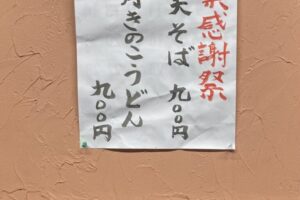 感謝祭
天そば 九〇〇円
きのこうどん 九〇〇円